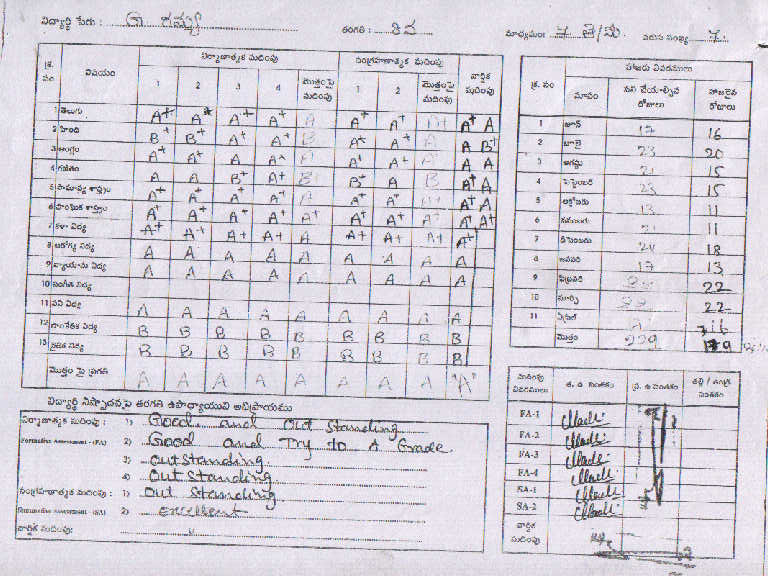 విద్యార్థి పేరు : G రమ్య తరగతి : 8వ మాధ్యమం: వరుస సంఖ్య 7.
క్ర. సం విషయం నిర్మాణాత్మక మదింపు సంగ్రహణాత్మక మదింపు వార్షిక మదింపు
1 2 3 4 మొత్తంపై మదింపు 1 2 మొత్తంపై మదింపు
1 తెలుగు A+ A+ A+ A+ A A+ A+ A+ A+ A
2 హింది B+ B+ A+ A+ B A+ A+ A+ A B+
3 ఆంగ్లం A+ A+ A A+ A A+ A+ A A A
4 గణితం A A B+ A+ B B+ A B A+ A
5 సామాన్య శాస్త్రం A+ A+ A+ A+ A A+ A+ A+ A
6 సాంఘిక శాస్త్రం A+ A+ A+ A+ A+ A+ A+ A+ A+ A+
7 కళా విద్య A+ A+ A+ A+ A A+ A+ A+ A+
8 ఆరోగ్య విద్య A A A A A A A A A
9 వ్యాయామ విద్య A A A A A A A A A
10 సంగీత విద్య
11 పని విద్య A A A A A A A A A
12 సాంకేతిక విద్య B B B B B B B B B
13 నైతిక విద్య B B B B B B B B B
మొత్తం పై ప్రగతి A A A A A A A A "A"
హాజరు వివరములు
క్ర. సం మాసం పని చేయాల్సిన రోజులు హాజరైన రోజులు
1 జూన్ 17 16
2 జూలై 23 20
3 ఆగస్టు 21 15
4 సెప్టెంబర్ 23 15
5 అక్టోబరు 13 11
6 నవంబరు 21 11
7 డిసెంబరు 24 18
8 జనవరి 17 13
9 ఫిబ్రవరి 22
10 మార్చి 22
11 ఏప్రిల్
మొత్తం 229
విద్యార్థి నిష్పాదనపై తరగతి ఉపాధ్యాయుని అభిప్రాయము
నిర్మాణాత్మక మదింపు : 1) Good and Out Standing
Formative Assessment - (FA) 2) Good and Try to A Grade
3) outstanding
4) Outstanding
సంగ్రహణాత్మక మదింపు : 1) Out Standing
2) Excellent
వార్షిక మదింపు:
మదింపు వివరములు త. ఉ. సంతకం ప్ర. ఉ సంతకం తల్లి / తండ్రి సంతకం
FA-1
FA-2
FA-3
FA-4
SA-1
SA-2
వార్షిక మదింపు